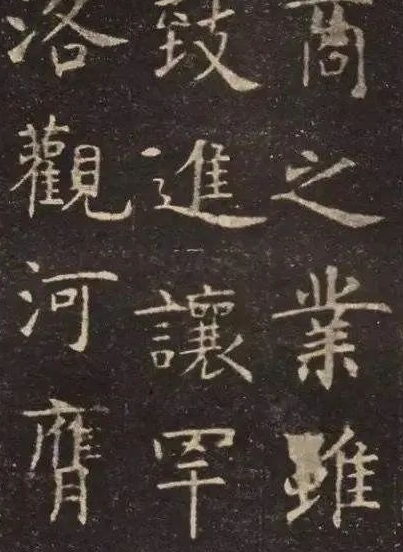 商之業雖
致進讓罕
洛觀河膺